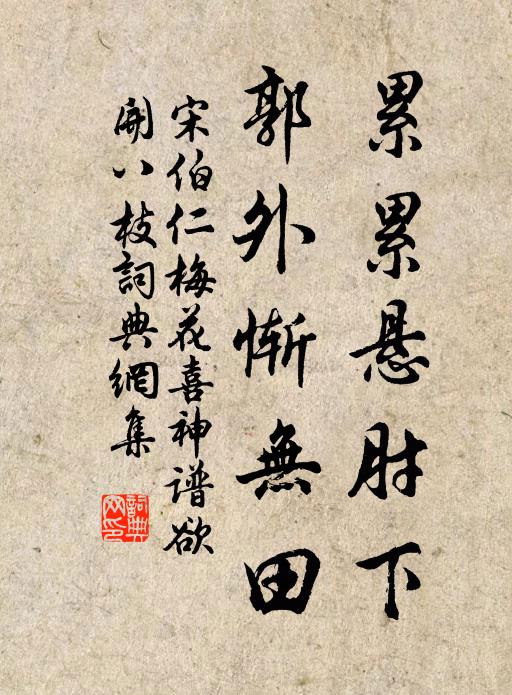 累累悬肘下
郭外惭無田
宋伯仁梅花喜神谱欲
開八枝詞典網集
詞典
网印